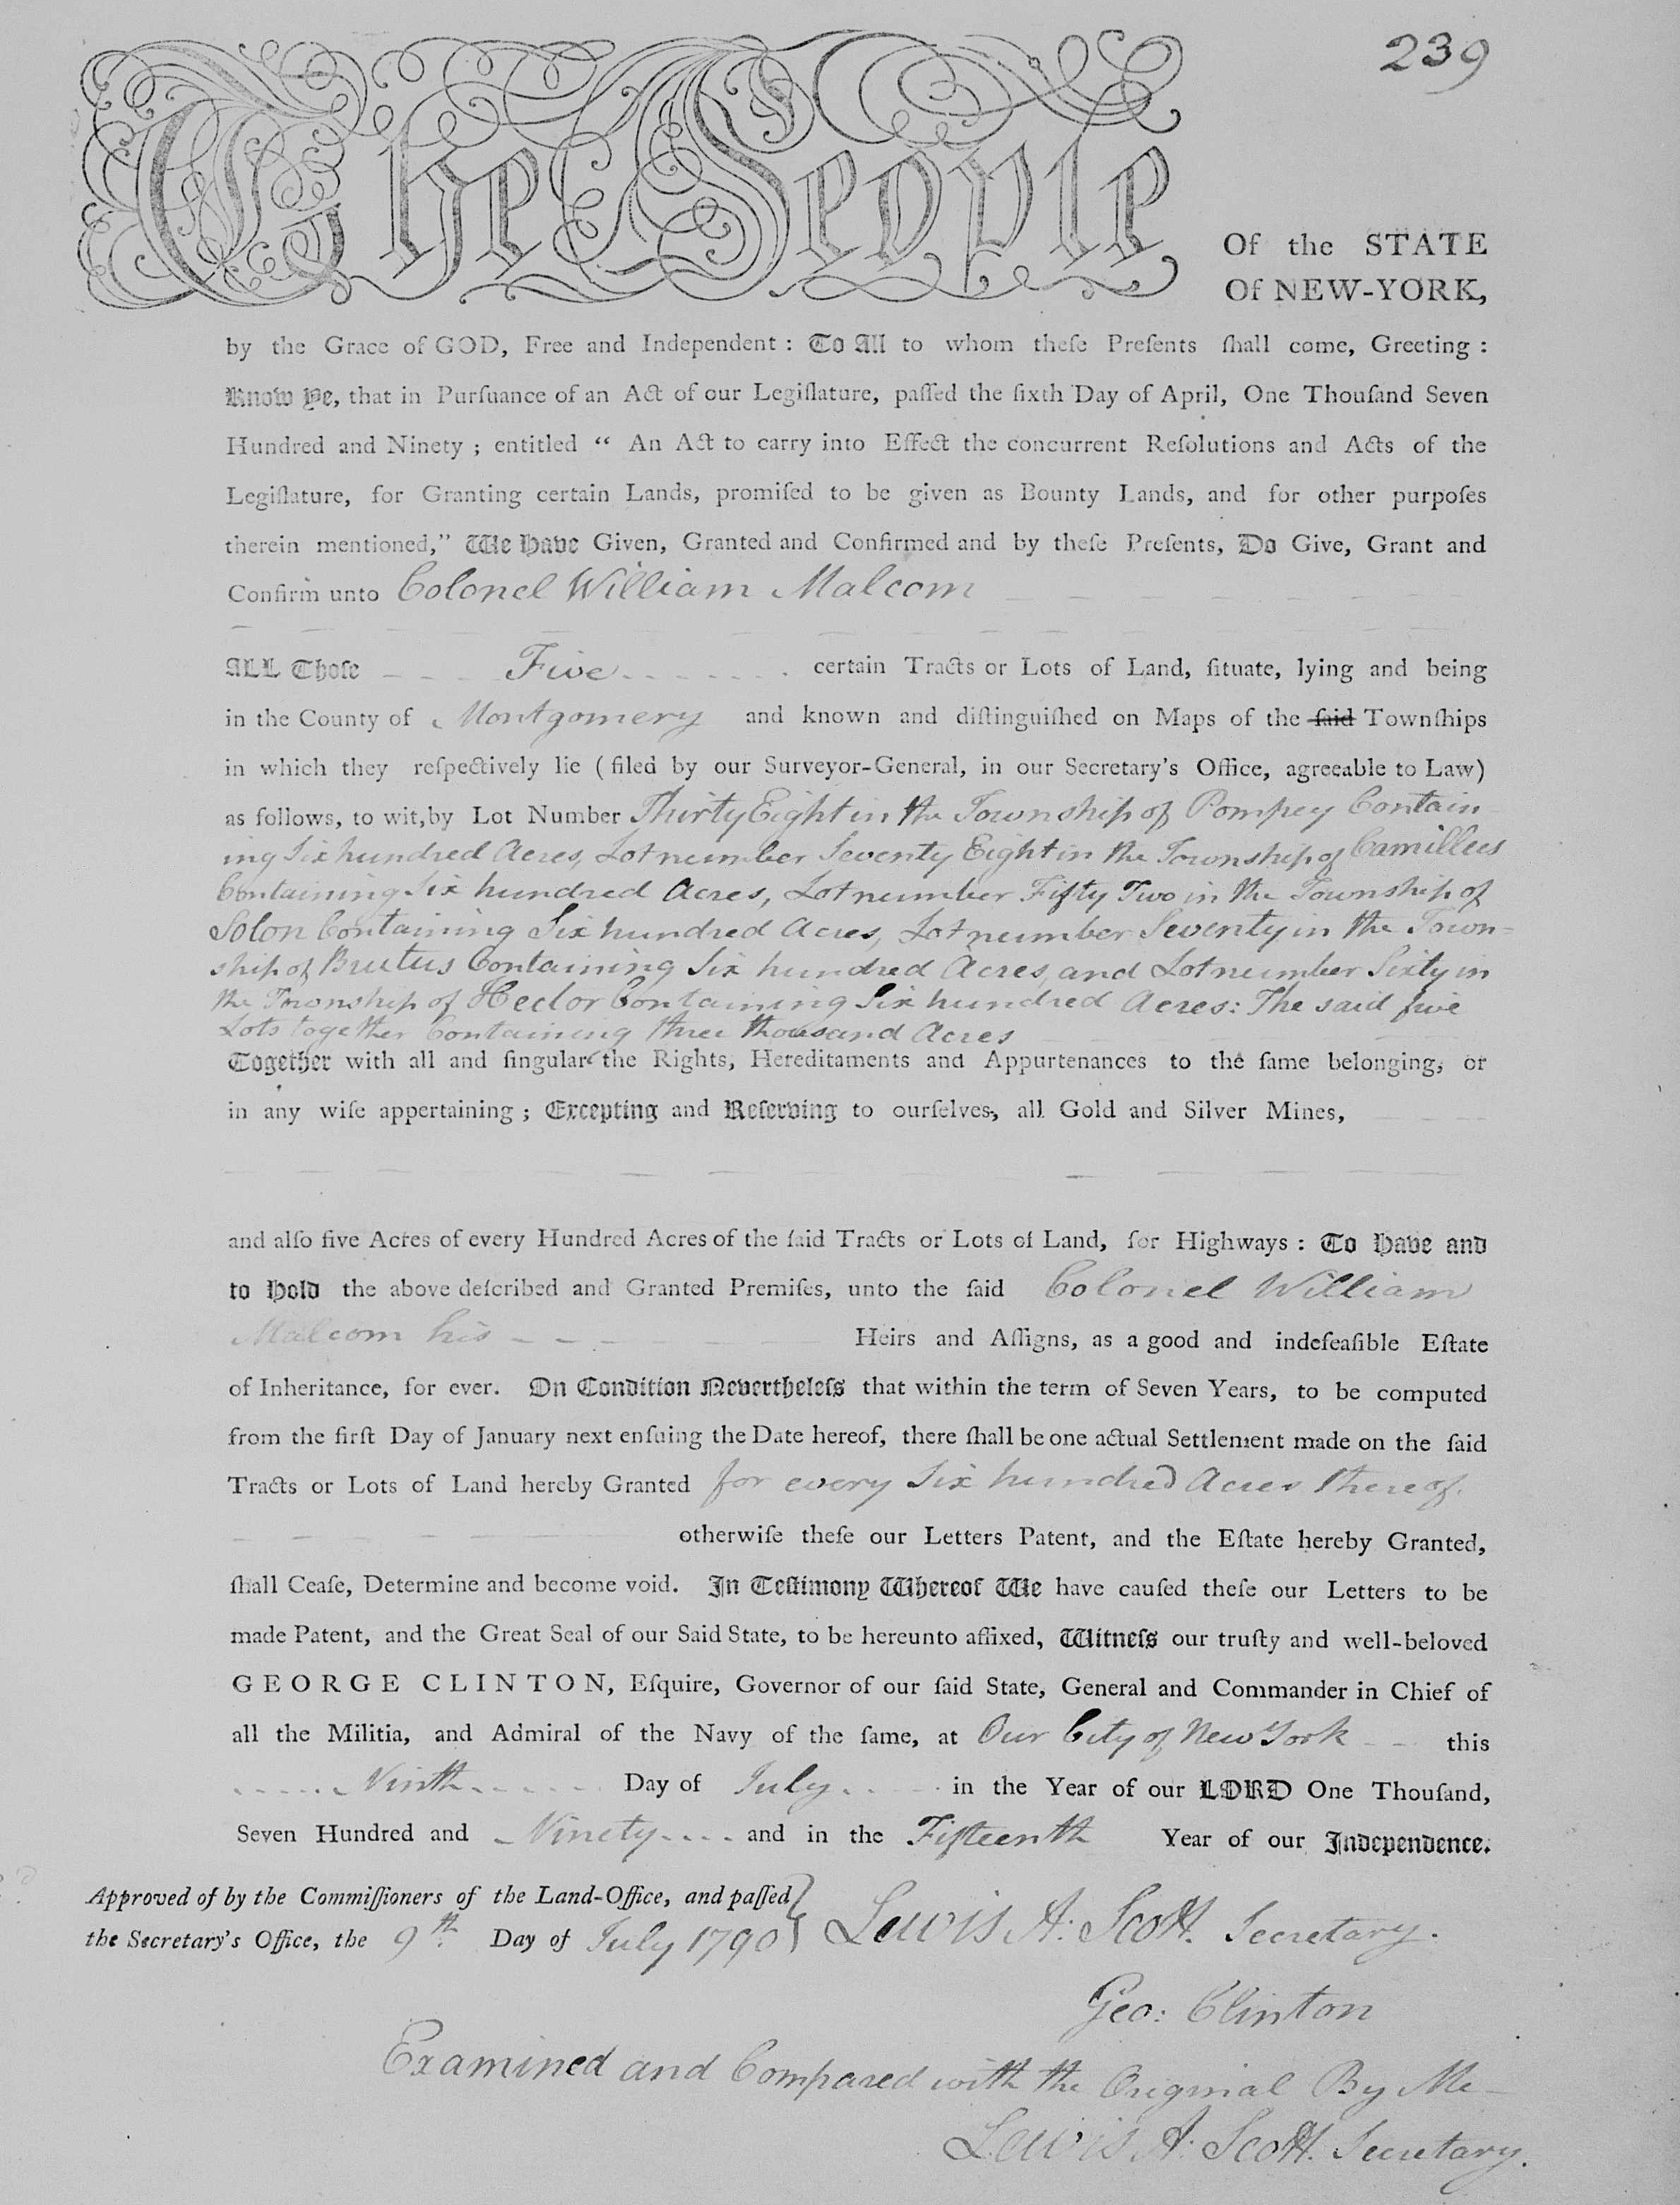 239
The People
Of the STATE
Of NEW-YORK,
by the Grace of GOD, Free and Independent : To All to whom theſe Preſents ſhall come, Greeting :
Know Ye, that in Purſuance of an Act of our Legiſlature, paſſed the ſixth Day of April, One Thouſand Seven
Hundred and Ninety ; entitled “ An Act to carry into Effect the concurrent Reſolutions and Acts of the
Legiſlature, for Granting certain Lands, promiſed to be given as Bounty Lands, and for other purpoſes
therein mentioned,” We Have Given, Granted and Confirmed and by theſe Preſents, Do Give, Grant and
Confirm unto Colonel William Malcom
ALL Thoſe Five certain Tracts or Lots of Land, ſituate, lying and being
in the County of Montgomery and known and diſtinguiſhed on Maps of the ſaid Townſhips
in which they reſpectively lie ( filed by our Surveyor-General, in our Secretary's Office, agreeable to Law)
as follows, to wit, by Lot Number Thirty Eight in the Township of Pompey Contain
ing Six hundred Acres, Lot number Seventy Eight in the Township of Camillees
Containing Six hundred Acres, Lot number Fifty Two in the Township of
Solon Containing Six hundred Acres, Lot number Seventy in the Town=
ship of Brutus Containing Six hundred Acres, and Lot number Sixty in
the Township of Hector Containing Six hundred Acres: The said five
Lots together Containing three thousand Acres
Together with all and ſingular the Rights, Hereditaments and Appurtenances to the ſame belonging, or
in any wiſe appertaining ; Excepting and Reſerving to ourſelves, all Gold and Silver Mines,
and alſo five Acres of every Hundred Acres of the ſaid Tracts or Lots of Land, for Highways : To Have and
to Hold the above deſcribed and Granted Premiſes, unto the ſaid Colonel William
Malcom his Heirs and Aſſigns, as a good and indefeaſible Eſtate
of Inheritance, for ever. On Condition Nevertheleſs that within the term of Seven Years, to be computed
from the firſt Day of January next enſuing the Date hereof, there ſhall be one actual Settlement made on the ſaid
Tracts or Lots of Land hereby Granted for every Six hundred Acres thereof.
otherwiſe theſe our Letters Patent, and the Eſtate hereby Granted,
ſhall Ceaſe, Determine and become void. In Teſtimony Whereof We have cauſed theſe our Letters to be
made Patent, and the Great Seal of our Said State, to be hereunto affixed, Witneſs our truſty and well-beloved
GEORGE CLINTON, Eſquire, Governor of our ſaid State, General and Commander in Chief of
all the Militia, and Admiral of the Navy of the ſame, at Our City of New York this
Ninth Day of July in the Year of our LORD One Thouſand,
Seven Hundred and Ninety and in the Fifteenth Year of our Independence.
Approved of by the Commiſſioners of the Land-Office, and paſſed
the Secretary's Office, the 9th Day of July 1790 } Lewis A: Scott. Secretary.
Geo: Clinton
Examined and Compared with the Original By Me
Lewis A: Scott. Secretary.